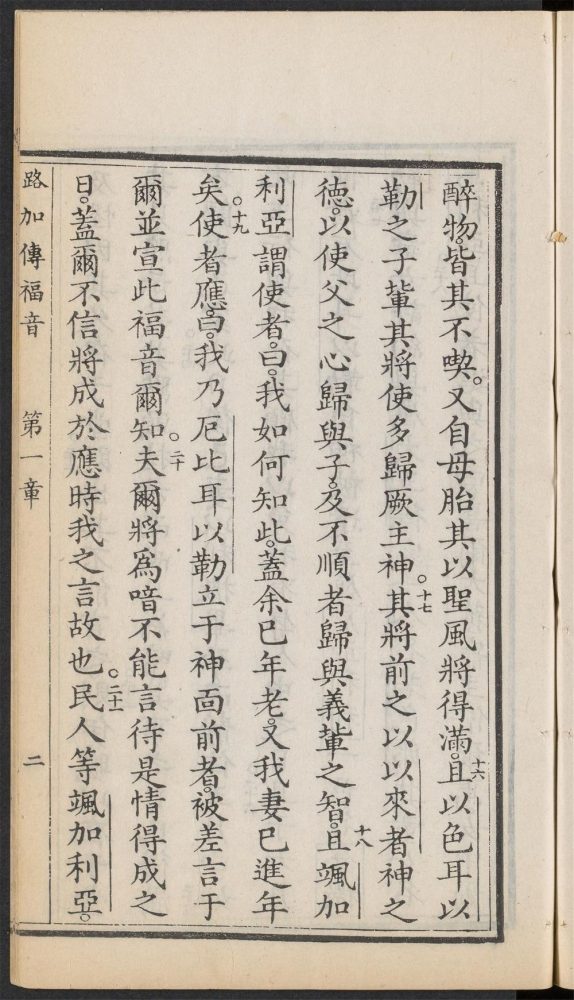 醉物。皆其不喫。又自母胎其以聖風將得滿。十六且以色耳以
勒之子輩其將使多歸厥主神。十七其將前之以以來者神之
德。以使父之心歸與子。及不順者歸與義輩之智。十八且颯加
利亞謂使者。曰。我如何知此。蓋余已年老。又我妻已進年
矣。十九使者應。曰。我乃厄比耳以勒立于神面前者。被差言于
爾並宣此福音爾知。二十夫爾將為喑不能言待是情得成之
日。蓋爾不信將成於應時我之言故也。二十一民人等颯加利亞。
路加傳福音 第一章 二